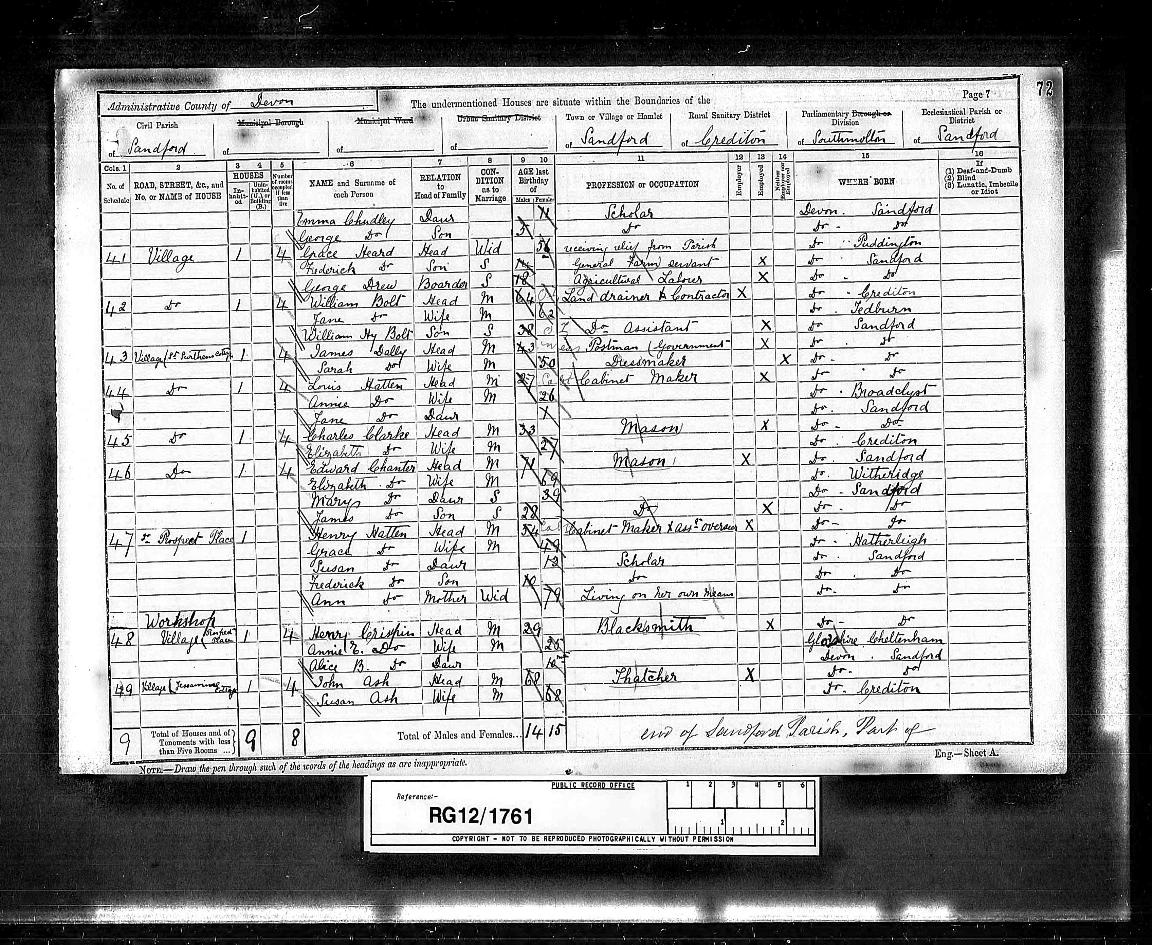 72
Administrative County of Devon
The undermentioned Houses are situate within the Boundaries of the
Page 7
Civil Parish
Municipal Borough
Municipal Ward
Urban Sanitary District
Town or Village or Hamlet
Rural Sanitary District
Parliamentary Borough or Division
Ecclesiastical Parish or District
of Sandford
of
of
of
of Sandford
of Crediton
of Southmolton
of Sandford
Cols. 1 2 3 4 5 6 7 8 9 10 11 12 13 14 15 16
No. of Schedule
ROAD, STREET, &c., and No. or NAME of HOUSE
HOUSES
Inhabited
Uninhabited (U.) or Building (B.)
Number of rooms occupied if less than five
NAME and Surname of each Person
RELATION to Head of Family
CONDITION as to Marriage
AGE last Birthday of
Males Females
PROFESSION or OCCUPATION
Employer
Employed
Neither Employer nor Employed
WHERE BORN
If
(1) Deaf-and-Dumb
(2) Blind
(3) Lunatic, Imbecile or Idiot
Emma Chudley Daur 11 Scholar Devon. Sandford
George Do Son 5 Do Do Do
41 Village 1 4 Grace Heard Head Wid 56 receiving relief from Parish Do Puddington
Frederick Do Son S 14 General Farm servant X Do Sandford
George Drew Boarder S 18 Agricultural Labour X Do Do
42 Do 1 4 William Bolt Head M 64 Land drainer & Contractor X Do Crediton
Jane Do Wife M 62 Do Tedburn
William Hy Bolt Son S 38 Do Assistant X Do Sandford
43 Village 1 4 James Dally Head M 43 Postman (Government X Do Do
Sarah Do Wife M 50 Dressmaker X Do Do
44 Do 1 4 Louis Hatten Head M 27 Cabinet Maker X Do Do
Annie Do Wife M 26 Do Broadclyst
Jane Do Daur 1 Do Sandford
45 Do 1 4 Charles Clarke Head M 33 Mason X Do Do
Elizabeth Do Wife M 27 Do Crediton
46 Do 1 4 Edward Chanter Head M 71 Mason X Do Sandford
Elizabeth Do Wife M 69 Do Witheridge
Mary Do Daur S 39 Do Sandford
James Do Son S 28 Do X Do Do
47 Prospect Place 1 Henry Hatten Head M 54 Cabinet Maker & Asst overseer X Do Do
Grace Do Wife M 49 Do Hatherleigh
Susan Do Daur 13 Scholar Do Sandford
Frederick Do Son 10 Do Do Do
Ann Do Mother Wid 79 Living on her own Means Do Do
Workshop
48 Village (Prospect Place 1 4 Henry Crispin Head M 29 Blacksmith X Do Do
Annie E. Do Wife M 25 Cheltenham
Alice B. Do Daur Devon Sandford
49 Village (Jessamine Cottage 1 4 John Ash Head M 68 Thatcher X Do Do
Susan Ash Wife M 68 Do Crediton
9 Total of Houses and of Tenements with less than Five Rooms ... 9 8 Total of Males and Females... 14 15 end of Sandford Parish, Part of
NOTE.—Draw the pen through such of the words of the headings as are inappropriate.
Eng.—Sheet A.
PUBLIC RECORD OFFICE
1 2 3 4 5 6
Reference:-
RG12/1761
1 2
COPYRIGHT - NOT TO BE REPRODUCED PHOTOGRAPHICALLY WITHOUT PERMISSION